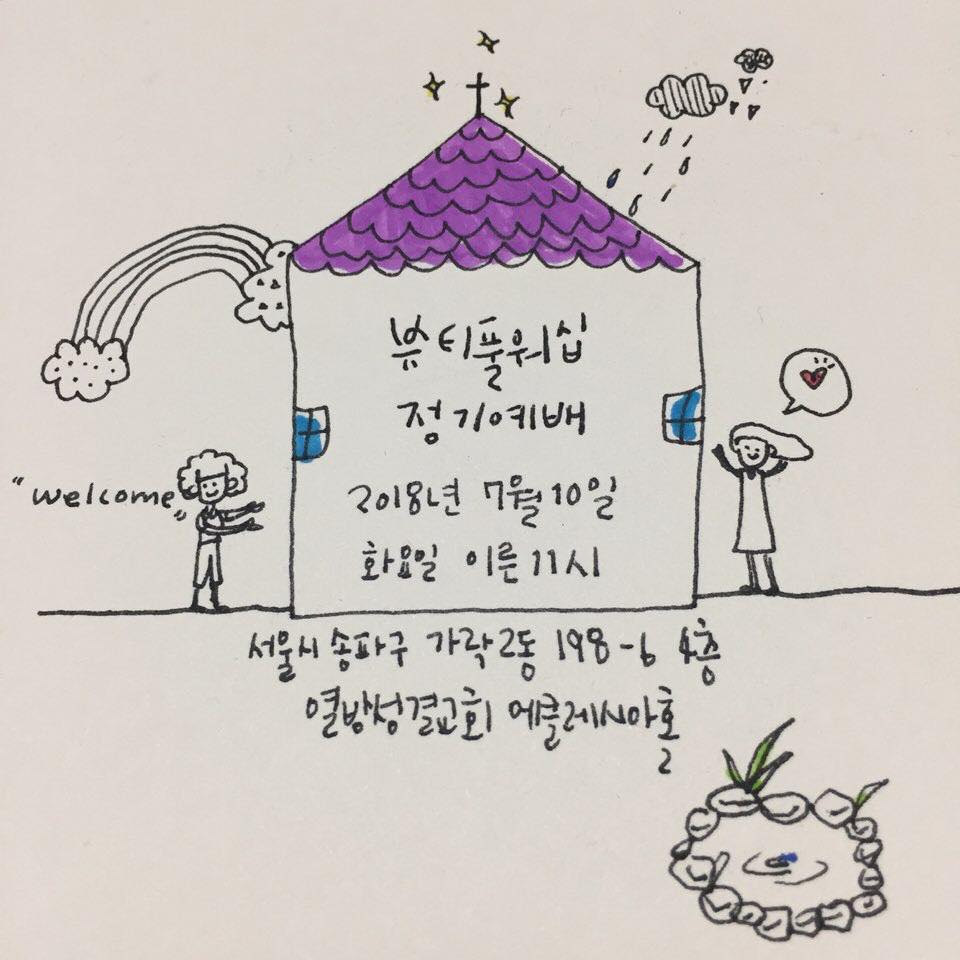 뷰티풀워십
정기예배
"welcome"
2018년 7월 10일
화요일 이른 11시
서울시 송파구 가락2동 198-6 4층
열방성결교회 에클레시아홀